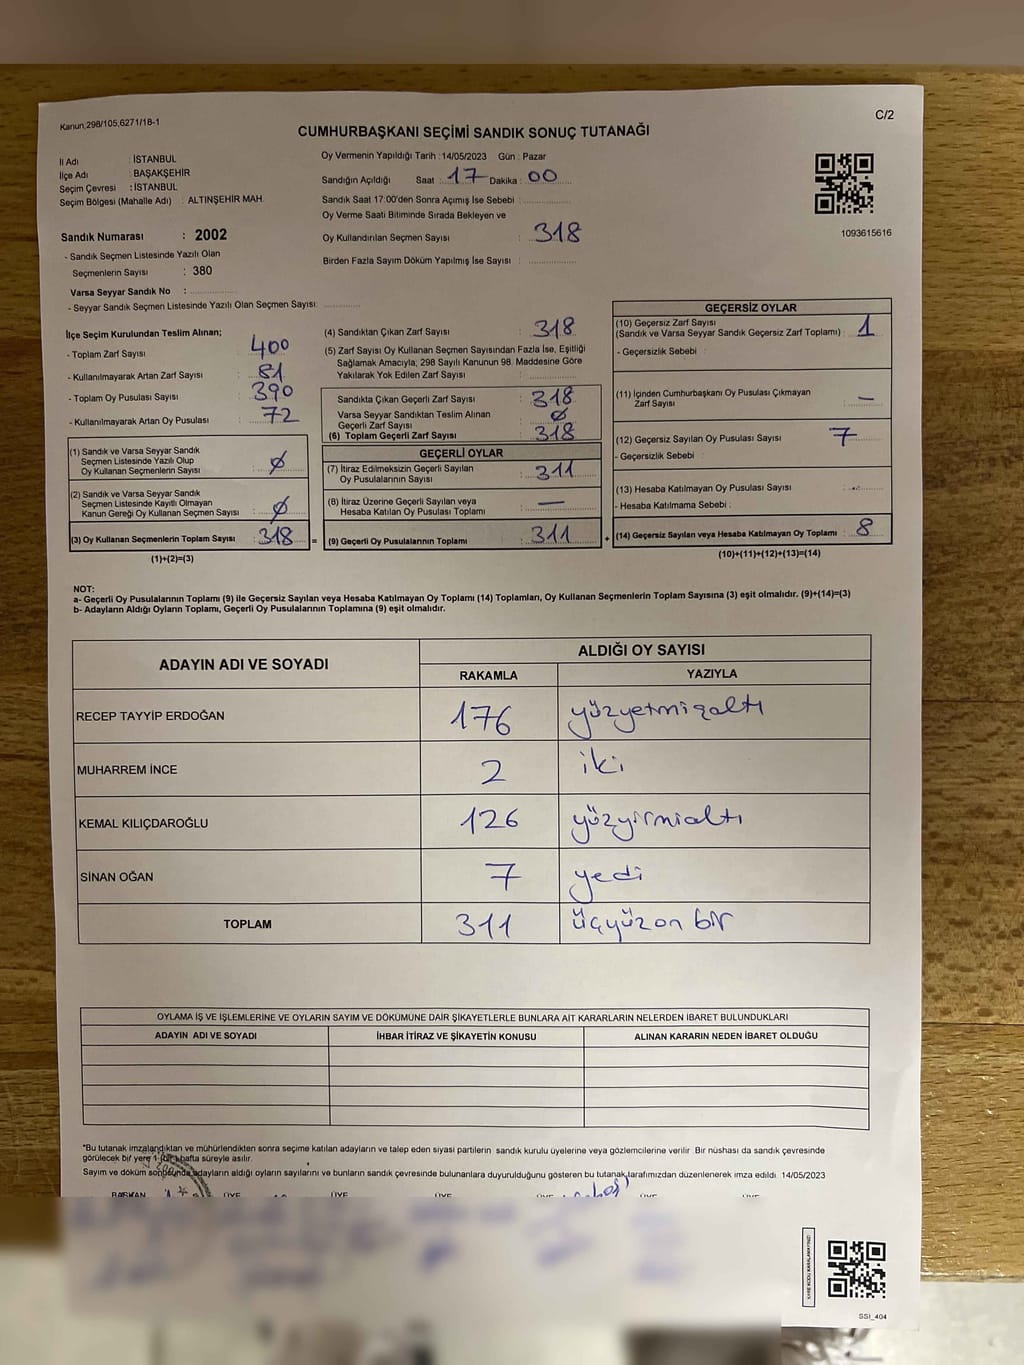 Kanun,298/105,6271/18-1
C/2
CUMHURBAŞKANI SEÇİMİ SANDIK SONUÇ TUTANAĞI
İl Adı : İSTANBUL
İlçe Adı : BAŞAKŞEHİR
Seçim Çevresi : İSTANBUL
Seçim Bölgesi (Mahalle Adı) : ALTINŞEHİR MAH.
Oy Vermenin Yapıldığı Tarih : 14/05/2023 Gün : Pazar
Sandığın Açıldığı Saat : 17 Dakika : 00
Sandık Saat 17:00'den Sonra Açımış İse Sebebi :
Oy Verme Saati Bitiminde Sırada Bekleyen ve
Oy Kullandırılan Seçmen Sayısı : 318
Birden Fazla Sayım Döküm Yapılmış İse Sayısı :
1093615616
Sandık Numarası : 2002
- Sandık Seçmen Listesinde Yazılı Olan
Seçmenlerin Sayısı : 380
Varsa Seyyar Sandık No :
- Seyyar Sandık Seçmen Listesinde Yazılı Olan Seçmen Sayısı:
İlçe Seçim Kurulundan Teslim Alınan;
- Toplam Zarf Sayısı : 400
- Kullanılmayarak Artan Zarf Sayısı : 81
- Toplam Oy Pusulası Sayısı : 390
- Kullanılmayarak Artan Oy Pusulası : 72
(1) Sandık ve Varsa Seyyar Sandık
Seçmen Listesinde Yazılı Olup
Oy Kullanan Seçmenlerin Sayısı : ∅
(2) Sandık ve Varsa Seyyar Sandık
Seçmen Listesinde Kayıtlı Olmayan
Kanun Gereği Oy Kullanan Seçmen Sayısı : ∅
(3) Oy Kullanan Seçmenlerin Toplam Sayısı : 318 =
(1)+(2)=(3)
(4) Sandıktan Çıkan Zarf Sayısı : 318
(5) Zarf Sayısı Oy Kullanan Seçmen Sayısından Fazla İse, Eşitliği
Sağlamak Amacıyla; 298 Sayılı Kanunun 98. Maddesine Göre
Yakılarak Yok Edilen Zarf Sayısı :
Sandıkta Çıkan Geçerli Zarf Sayısı : 318
Varsa Seyyar Sandıktan Teslim Alınan
Geçerli Zarf Sayısı : ∅
(6) Toplam Geçerli Zarf Sayısı : 318
GEÇERLİ OYLAR
(7) İtiraz Edilmeksizin Geçerli Sayılan
Oy Pusulalarının Sayısı : 311
(8) İtiraz Üzerine Geçerli Sayılan veya
Hesaba Katılan Oy Pusulası Toplamı : —
(9) Geçerli Oy Pusulalarının Toplamı : 311 +
GEÇERSİZ OYLAR
(10) Geçersiz Zarf Sayısı
(Sandık ve Varsa Seyyar Sandık Geçersiz Zarf Toplamı) : 1
- Geçersizlik Sebebi :
(11) İçinden Cumhurbaşkanı Oy Pusulası Çıkmayan
Zarf Sayısı : —
(12) Geçersiz Sayılan Oy Pusulası Sayısı : 7
- Geçersizlik Sebebi :
(13) Hesaba Katılmayan Oy Pusulası Sayısı :
- Hesaba Katılmama Sebebi :
(14) Geçersiz Sayılan veya Hesaba Katılmayan Oy Toplamı : 8
(10)+(11)+(12)+(13)=(14)
NOT:
a- Geçerli Oy Pusulalarının Toplamı (9) ile Geçersiz Sayılan veya Hesaba Katılmayan Oy Toplamı (14) Toplamları, Oy Kullanan Seçmenlerin Toplam Sayısına (3) eşit olmalıdır. (9)+(14)=(3)
b- Adayların Aldığı Oyların Toplamı, Geçerli Oy Pusulalarının Toplamına (9) eşit olmalıdır.
ADAYIN ADI VE SOYADI
ALDIĞI OY SAYISI
RAKAMLA YAZIYLA
RECEP TAYYİP ERDOĞAN 176 yüzyetmişaltı
MUHARREM İNCE 2 iki
KEMAL KILIÇDAROĞLU 126 yüzyirmialtı
SİNAN OĞAN 7 yedi
TOPLAM 311 üçyüzon bir
OYLAMA İŞ VE İŞLEMLERİNE VE OYLARIN SAYIM VE DÖKÜMÜNE DAİR ŞİKAYETLERLE BUNLARA AİT KARARLARIN NELERDEN İBARET BULUNDUKLARI
ADAYIN ADI VE SOYADI İHBAR İTİRAZ VE ŞİKAYETİN KONUSU ALINAN KARARIN NEDEN İBARET OLDUĞU
*Bu tutanak imzalandıktan ve mühürlendikten sonra seçime katılan adayların ve talep eden siyasi partilerin sandık kurulu üyelerine veya gözlemcilerine verilir Bir nüshası da sandık çevresinde
görülecek bir yere 1 (bir) hafta süreyle asılır.
Sayım ve döküm sonucunda adayların aldığı oyların sayılarını ve bunların sandık çevresinde bulunanlara duyurulduğunu gösteren bu tutanak tarafımızdan düzenlenerek imza edildi. 14/05/2023
BAŞKAN ÜYE ÜYE ÜYE ÜYE ÜYE
SSI_404